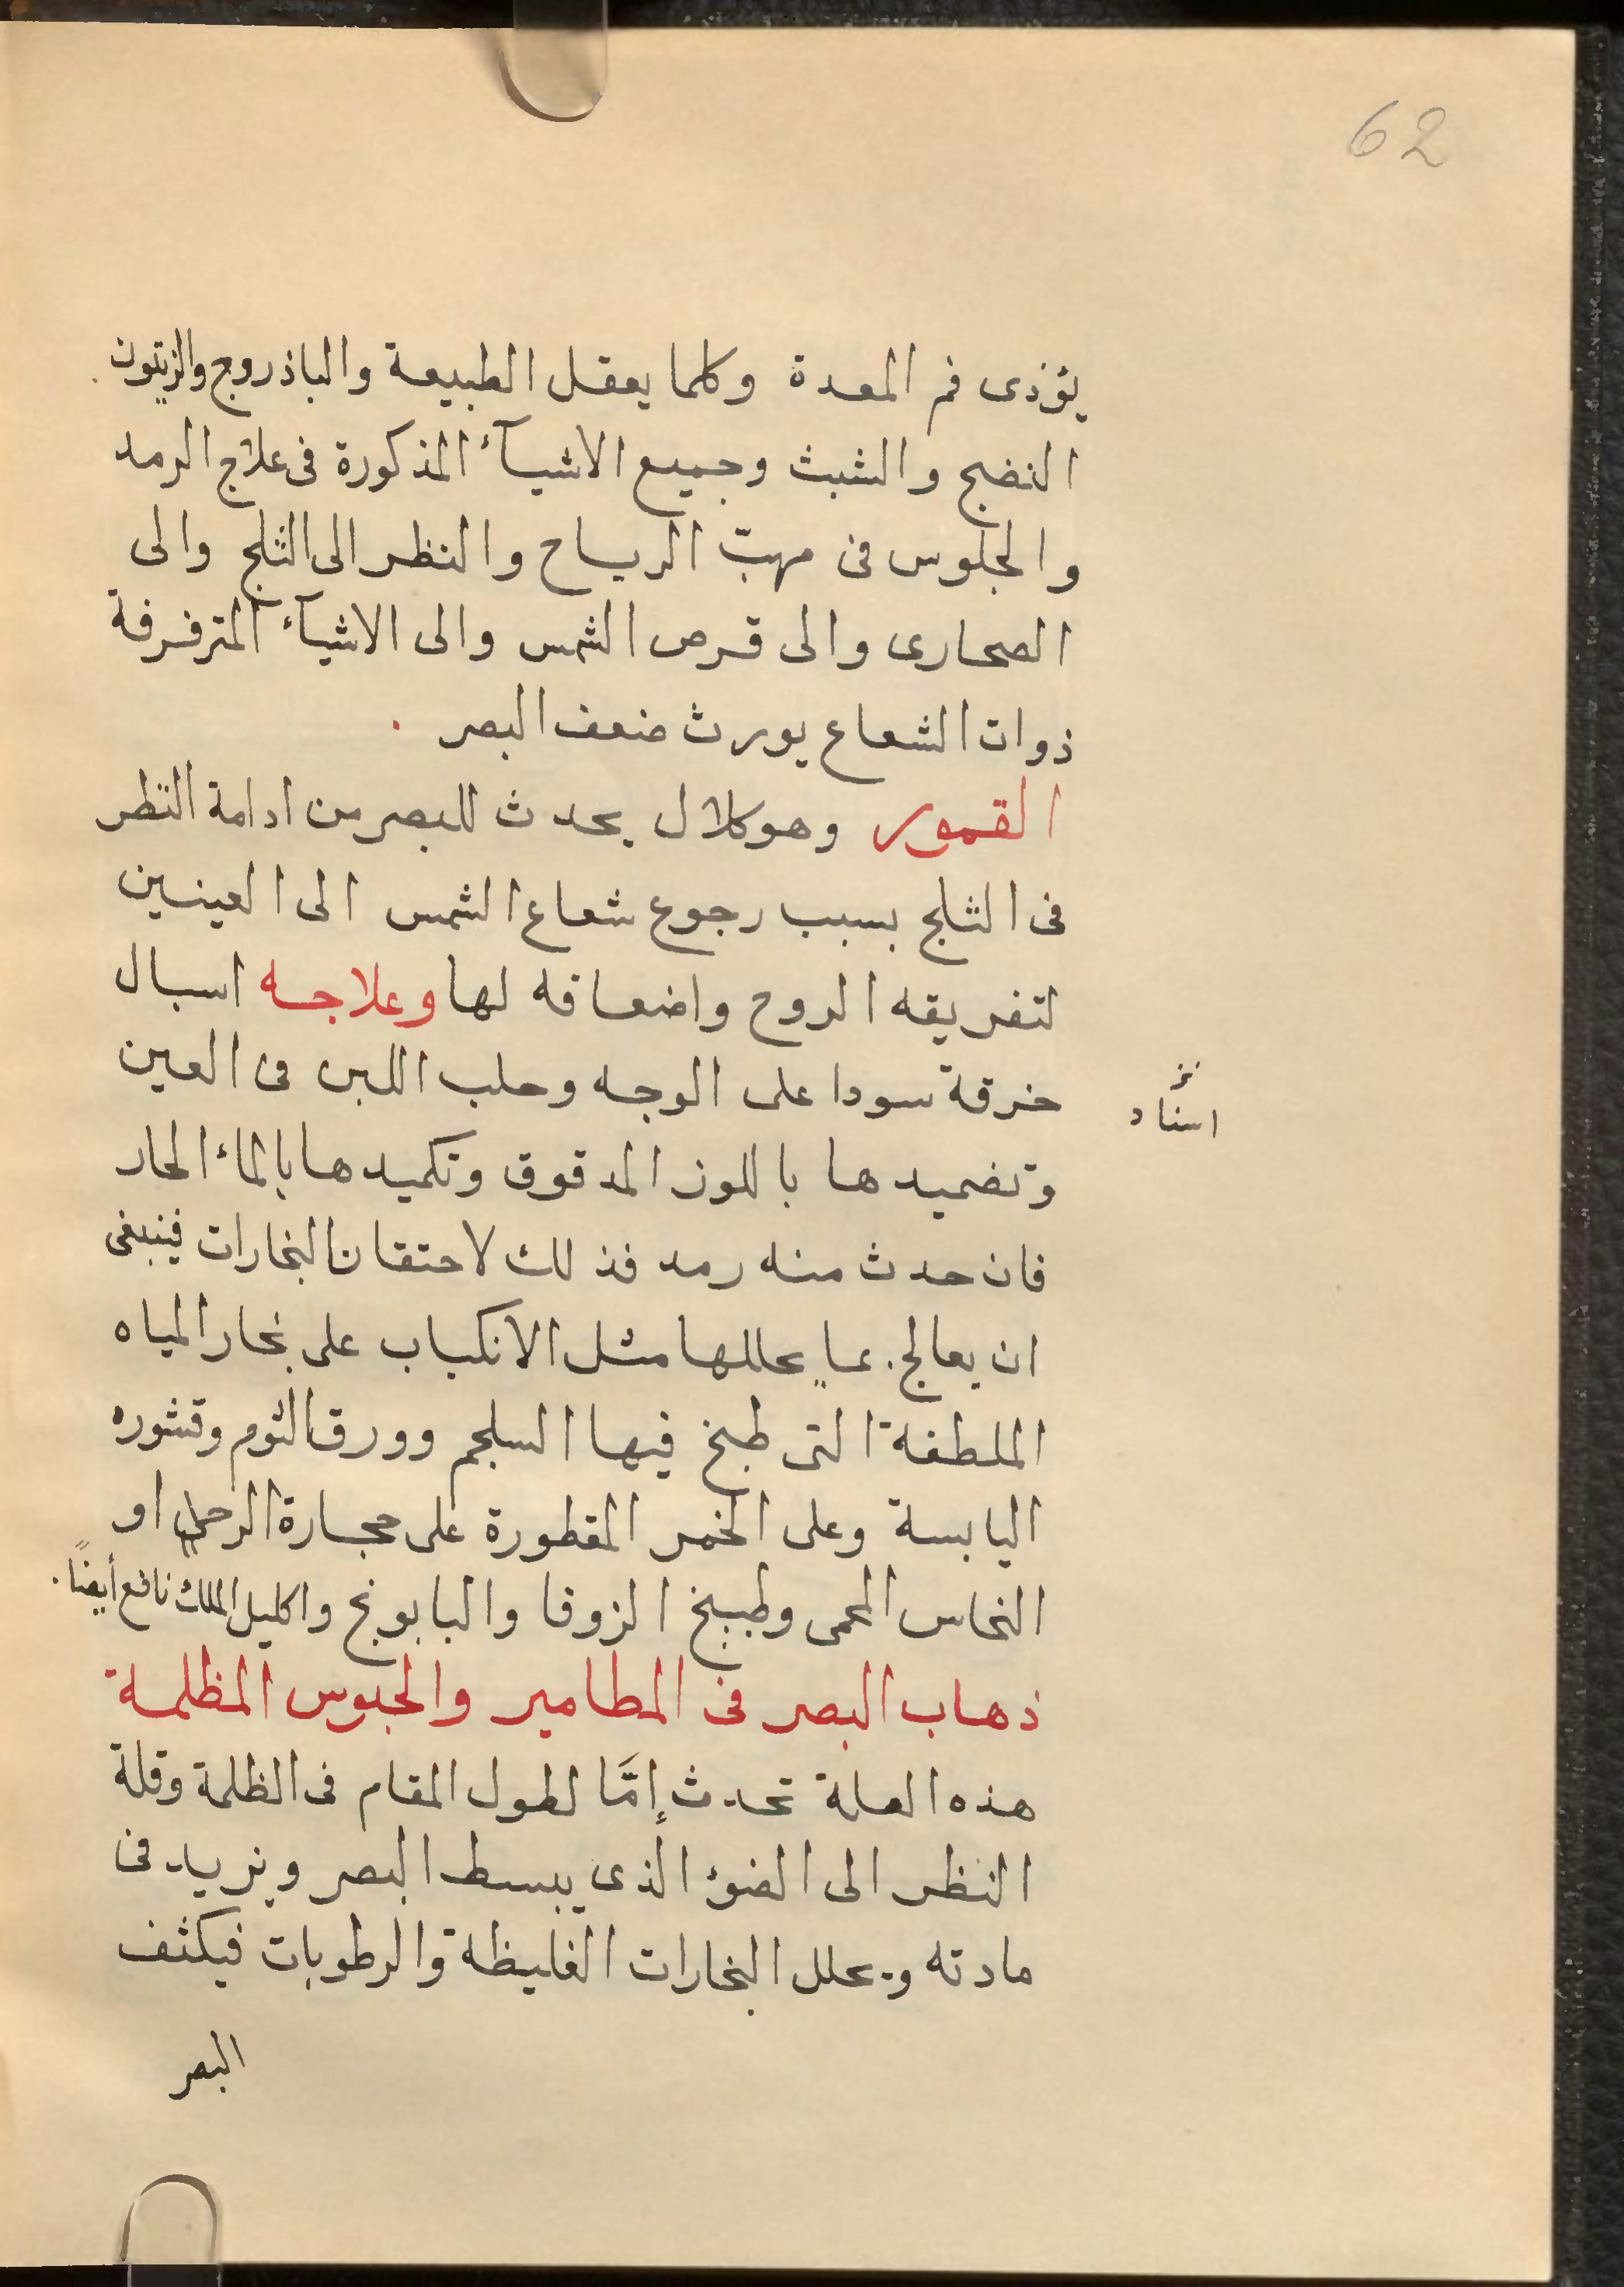 62
يؤذى فم المعدة وكلما يعقل الطبيعة والباذروج والزيتون
النضج والشبث وجميع الاشيآء المذكورة فى علاج الرمد
والجلوس فى مهبّ الرياح والنظر الى الثلج والى
الصحارى والى قرص الشمس والى الاشيآء المترفرفة
ذوات الشعاع يورث ضعف البصر .
القمور وهو كلال يحدث للبصر من ادامة النظر
فى الثلج بسبب رجوع شعاع الشمس الى العينين
لتفريقه الروح واضعافه لها وعلاجه اسبال
خرقة سودا على الوجه وحلب اللبن فى العين
اسناد
وتضميدها باللوز المدقوق وتكميدها بالماء الحار
فان حدث منه رمد فذلك لاحتقان البخارات فينبغى
ان يعالج بما يحللها مثل الانكباب على بخار المياه
الملطفة التى طبخ فيها السلجم وورق الثوم وقشوره
اليابسة وعلى الخمر المقطورة على حجارة الرحى او
النحاس المحمى وطبيخ الزوفا والبابونج واكليل الملك نافع أيضًا .
ذهاب البصر فى المطامير والحبوس المظلمة
هذه العلة تحدث إمَّا لطول المقام فى الظلمة وقلة
النظر الى الضوء الذى يبسط البصر ويزيد فى
مادته ويحلل البخارات الغليظة والرطوبات فيكثف
البصر